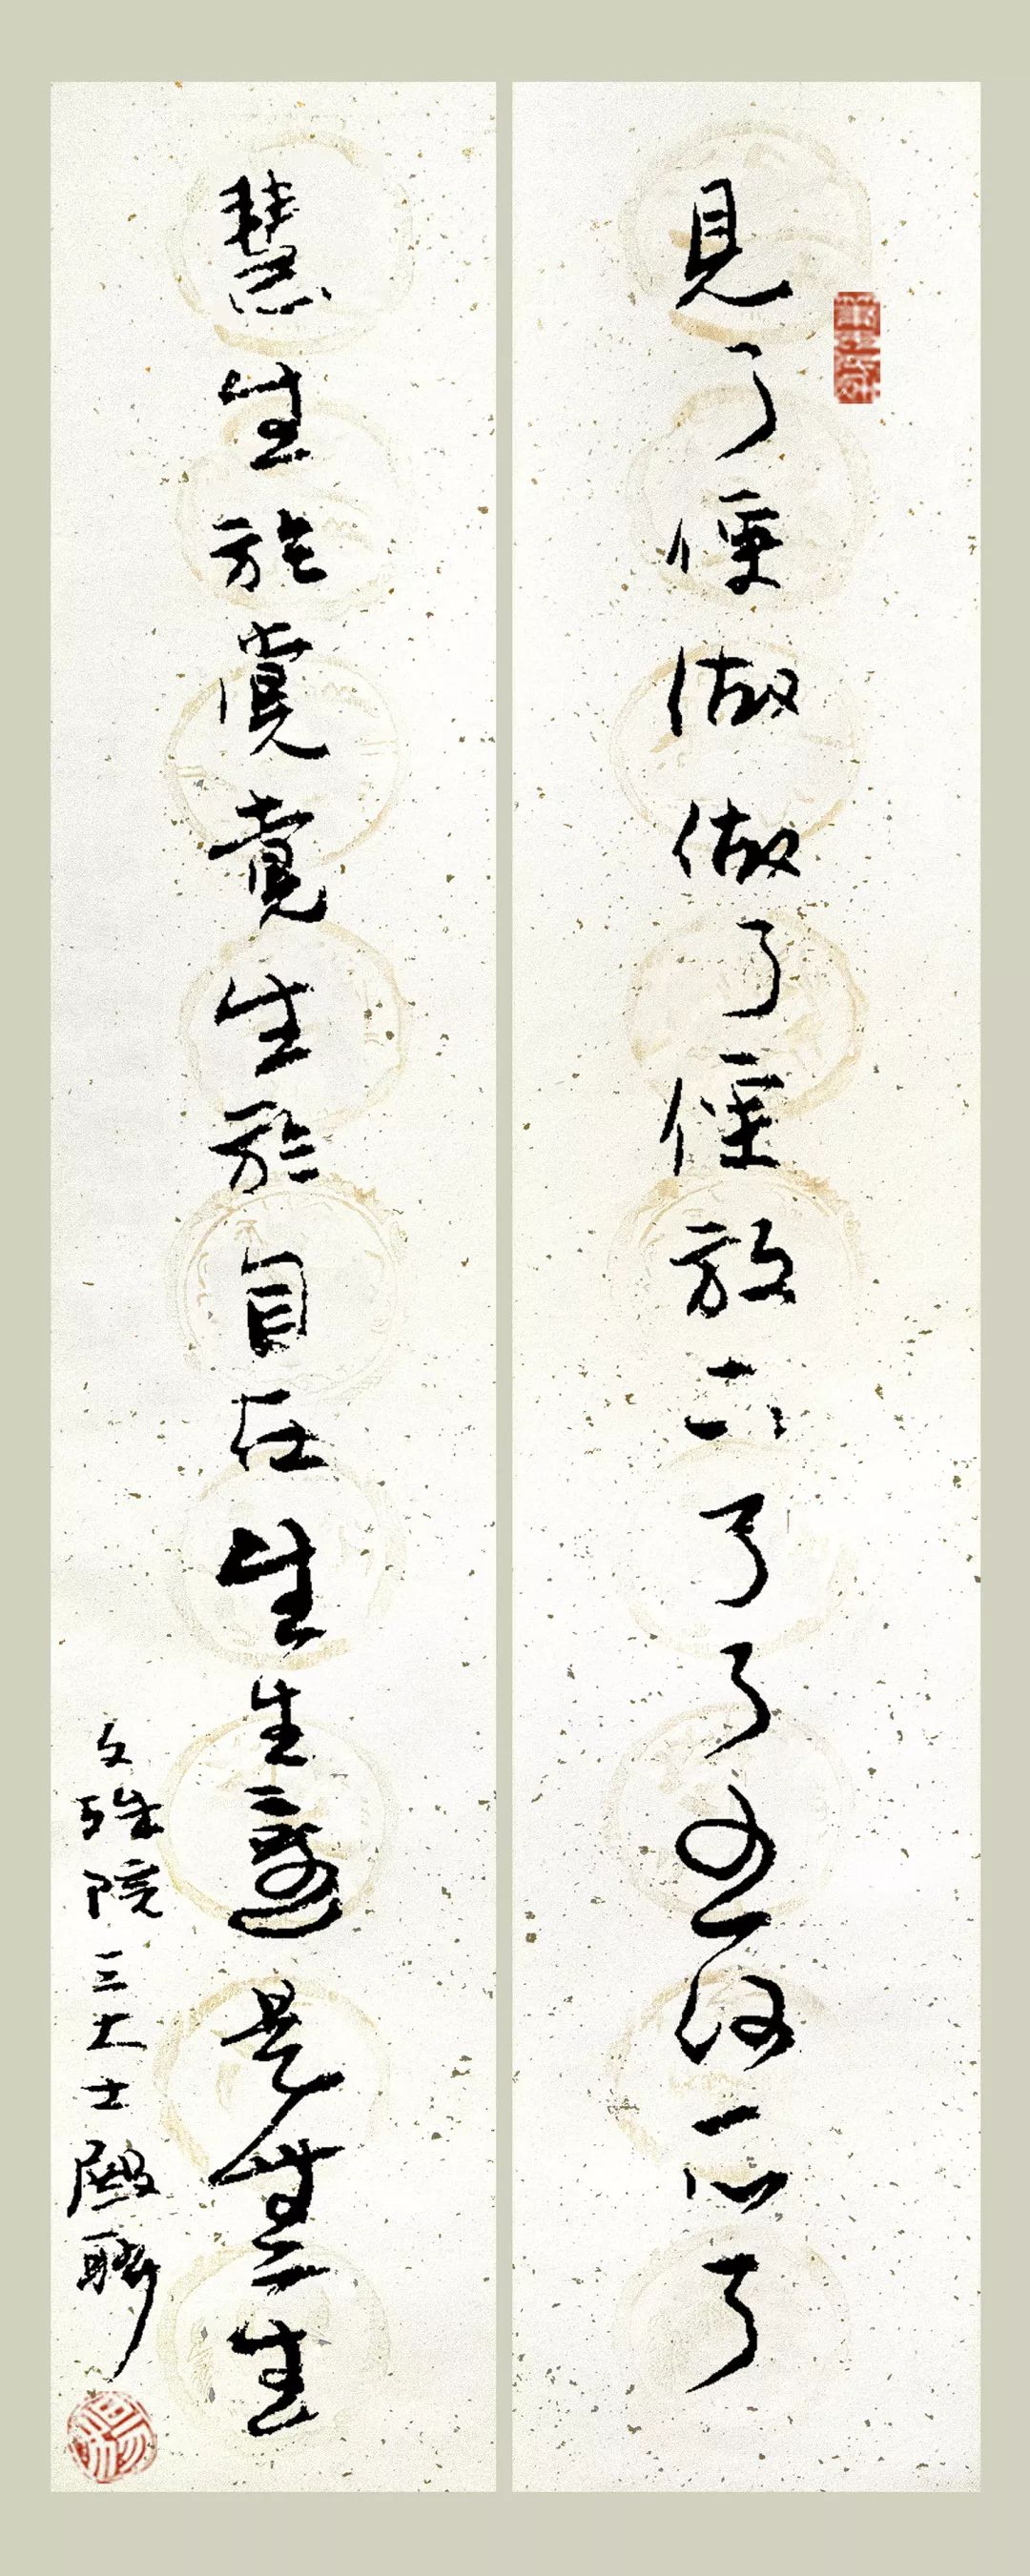 見了便做做了便放下了了有何不了
慧生於覺覺生於自在生生還是無生
文殊院三大士殿聯